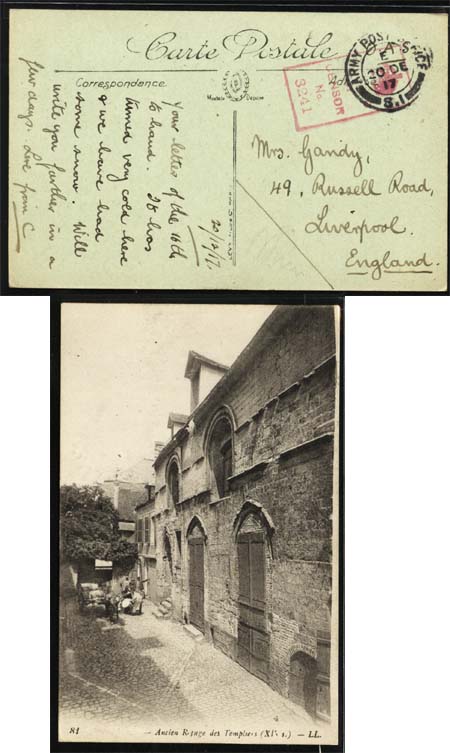 Carte Postale
Correspondence
ARMY POST OFFICE
20 DE
17
S.1
CENSOR
No.
3241
20/12/17.
Your letter of the 16th
to hand. It has
turned very cold here
& we have had
some snow. Will
write you further in a
few days. Love from C
Mrs. Gandy,
49, Russell Road,
Liverpool.
England.
81 — Ancien Refuge des Templiers (XIe s.) — LL.